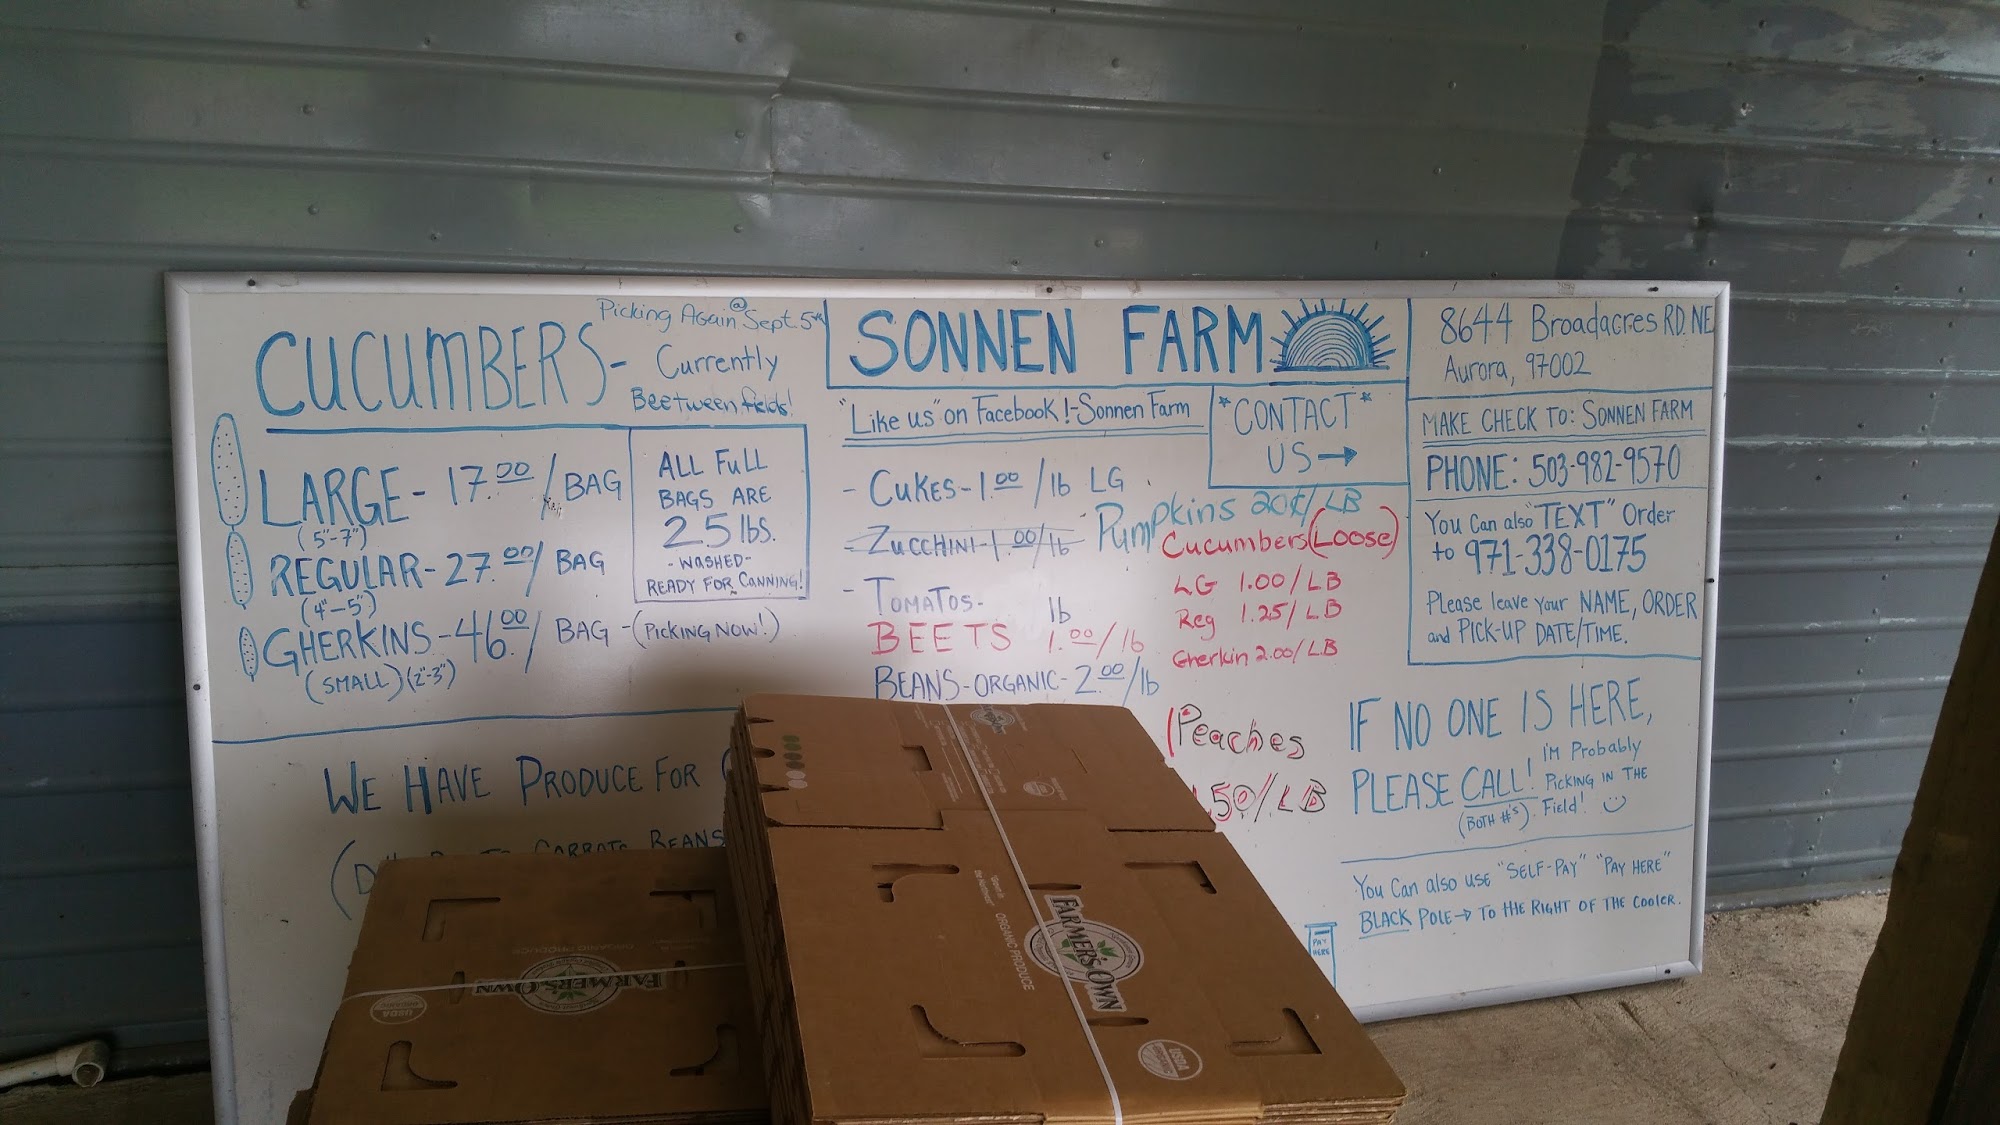 Picking Again @ Sept. 5th
CUCUMBERS- Currently
Beetween fields!
LARGE- 17.00/BAG
(5"-7")
REGULAR- 27.00/ BAG
(4"-5")
GHERKINS-46.00/ BAG -(PICKING NOW!)
(SMALL)(2"-3")
ALL FULL
BAGS ARE
25 lbs.
-WASHED-
READY FOR CANNING!
WE HAVE PRODUCE FOR
CARROTS BEANS
SONNEN FARM
"Like us" on Facebook!-Sonnen Farm
*CONTACT*
US→
- CUKES-1.00/lb LG
- ZUCCHINI-1.00/lb
- TOMATOS- lb
BEETS 1.00/lb
BEANS-ORGANIC-2.00/lb
Pumpkins 20¢/LB
Cucumbers (Loose)
LG 1.00/LB
Reg 1.25/LB
Gherkin 2.00/LB
Peaches
.50/LB
8644 Broadacres RD. NE
Aurora, 97002
MAKE CHECK TO: SONNEN FARM
PHONE: 503-982-9570
You Can also "TEXT" Order
to 971-338-0175
Please leave your NAME, ORDER
and PICK-UP DATE/TIME.
IF NO ONE IS HERE,
PLEASE CALL! I'M Probably
(BOTH #'s) PICKING IN THE
Field!
You Can also use "SELF-PAY" "PAY HERE"
BLACK POLE→ TO THE RIGHT OF THE COOLER.
PAY
HERE
FARMER'S OWN
ORGANIC PRODUCE
USDA
ORGANIC
"Grown in
the Northwest"
ORGANIC PRODUCE
FARMER'S OWN
USDA
ORGANIC